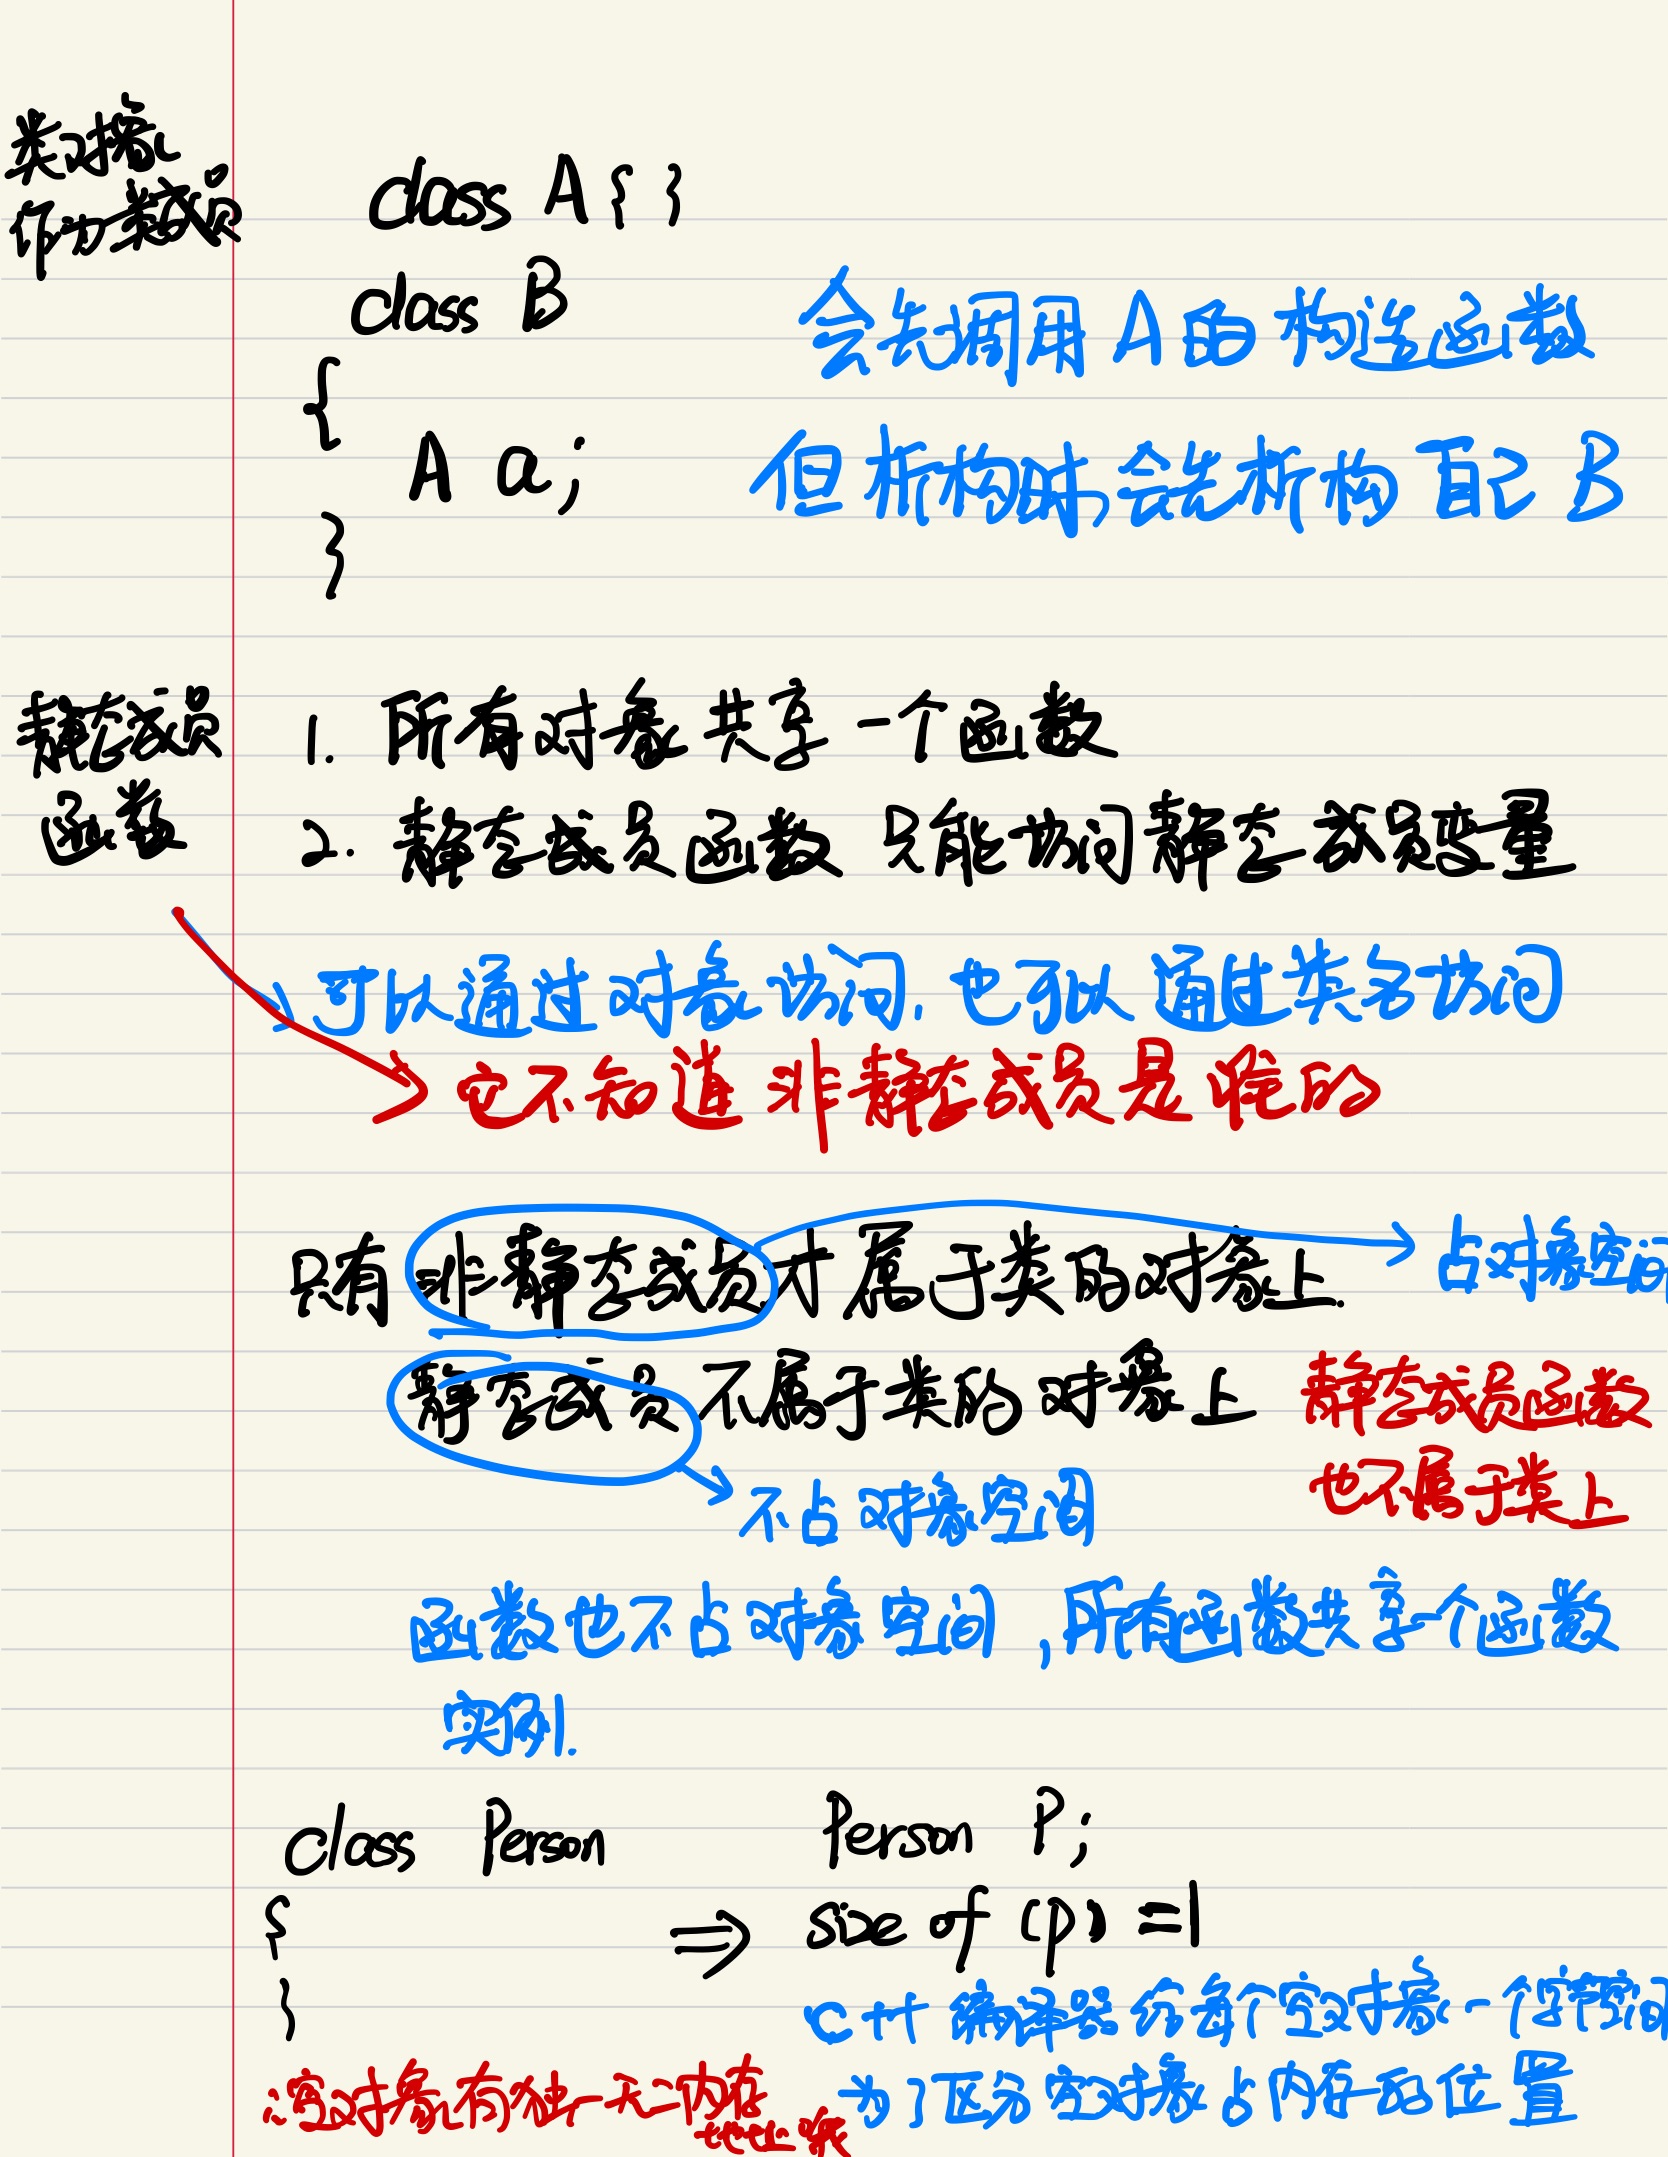 类对象
作为类成员
class A { }
class B
{
A a;
}
会先调用 A 的 构造函数
但析构时,会先析构 自己 B
静态成员
函数
1. 所有对象共享一个函数
2. 静态成员函数 只能访问静态成员变量
可以通过对象访问, 也可以通过类名访问
它不知道 非静态成员是谁的
只有 非静态成员 才属于类的对象上.
占对象空间
静态成员 不属于类的对象上
静态成员函数
也不属于类上
不占对象空间
函数也不占对象空间 ,所有函数共享一个函数
实例.
class Person
{
}
⇒
Person P;
size of (p) =1
C++ 编译器给每个空对象一个字节空间
为了区分空对象占内存的位置
∴空对象有独一无二内存
地址